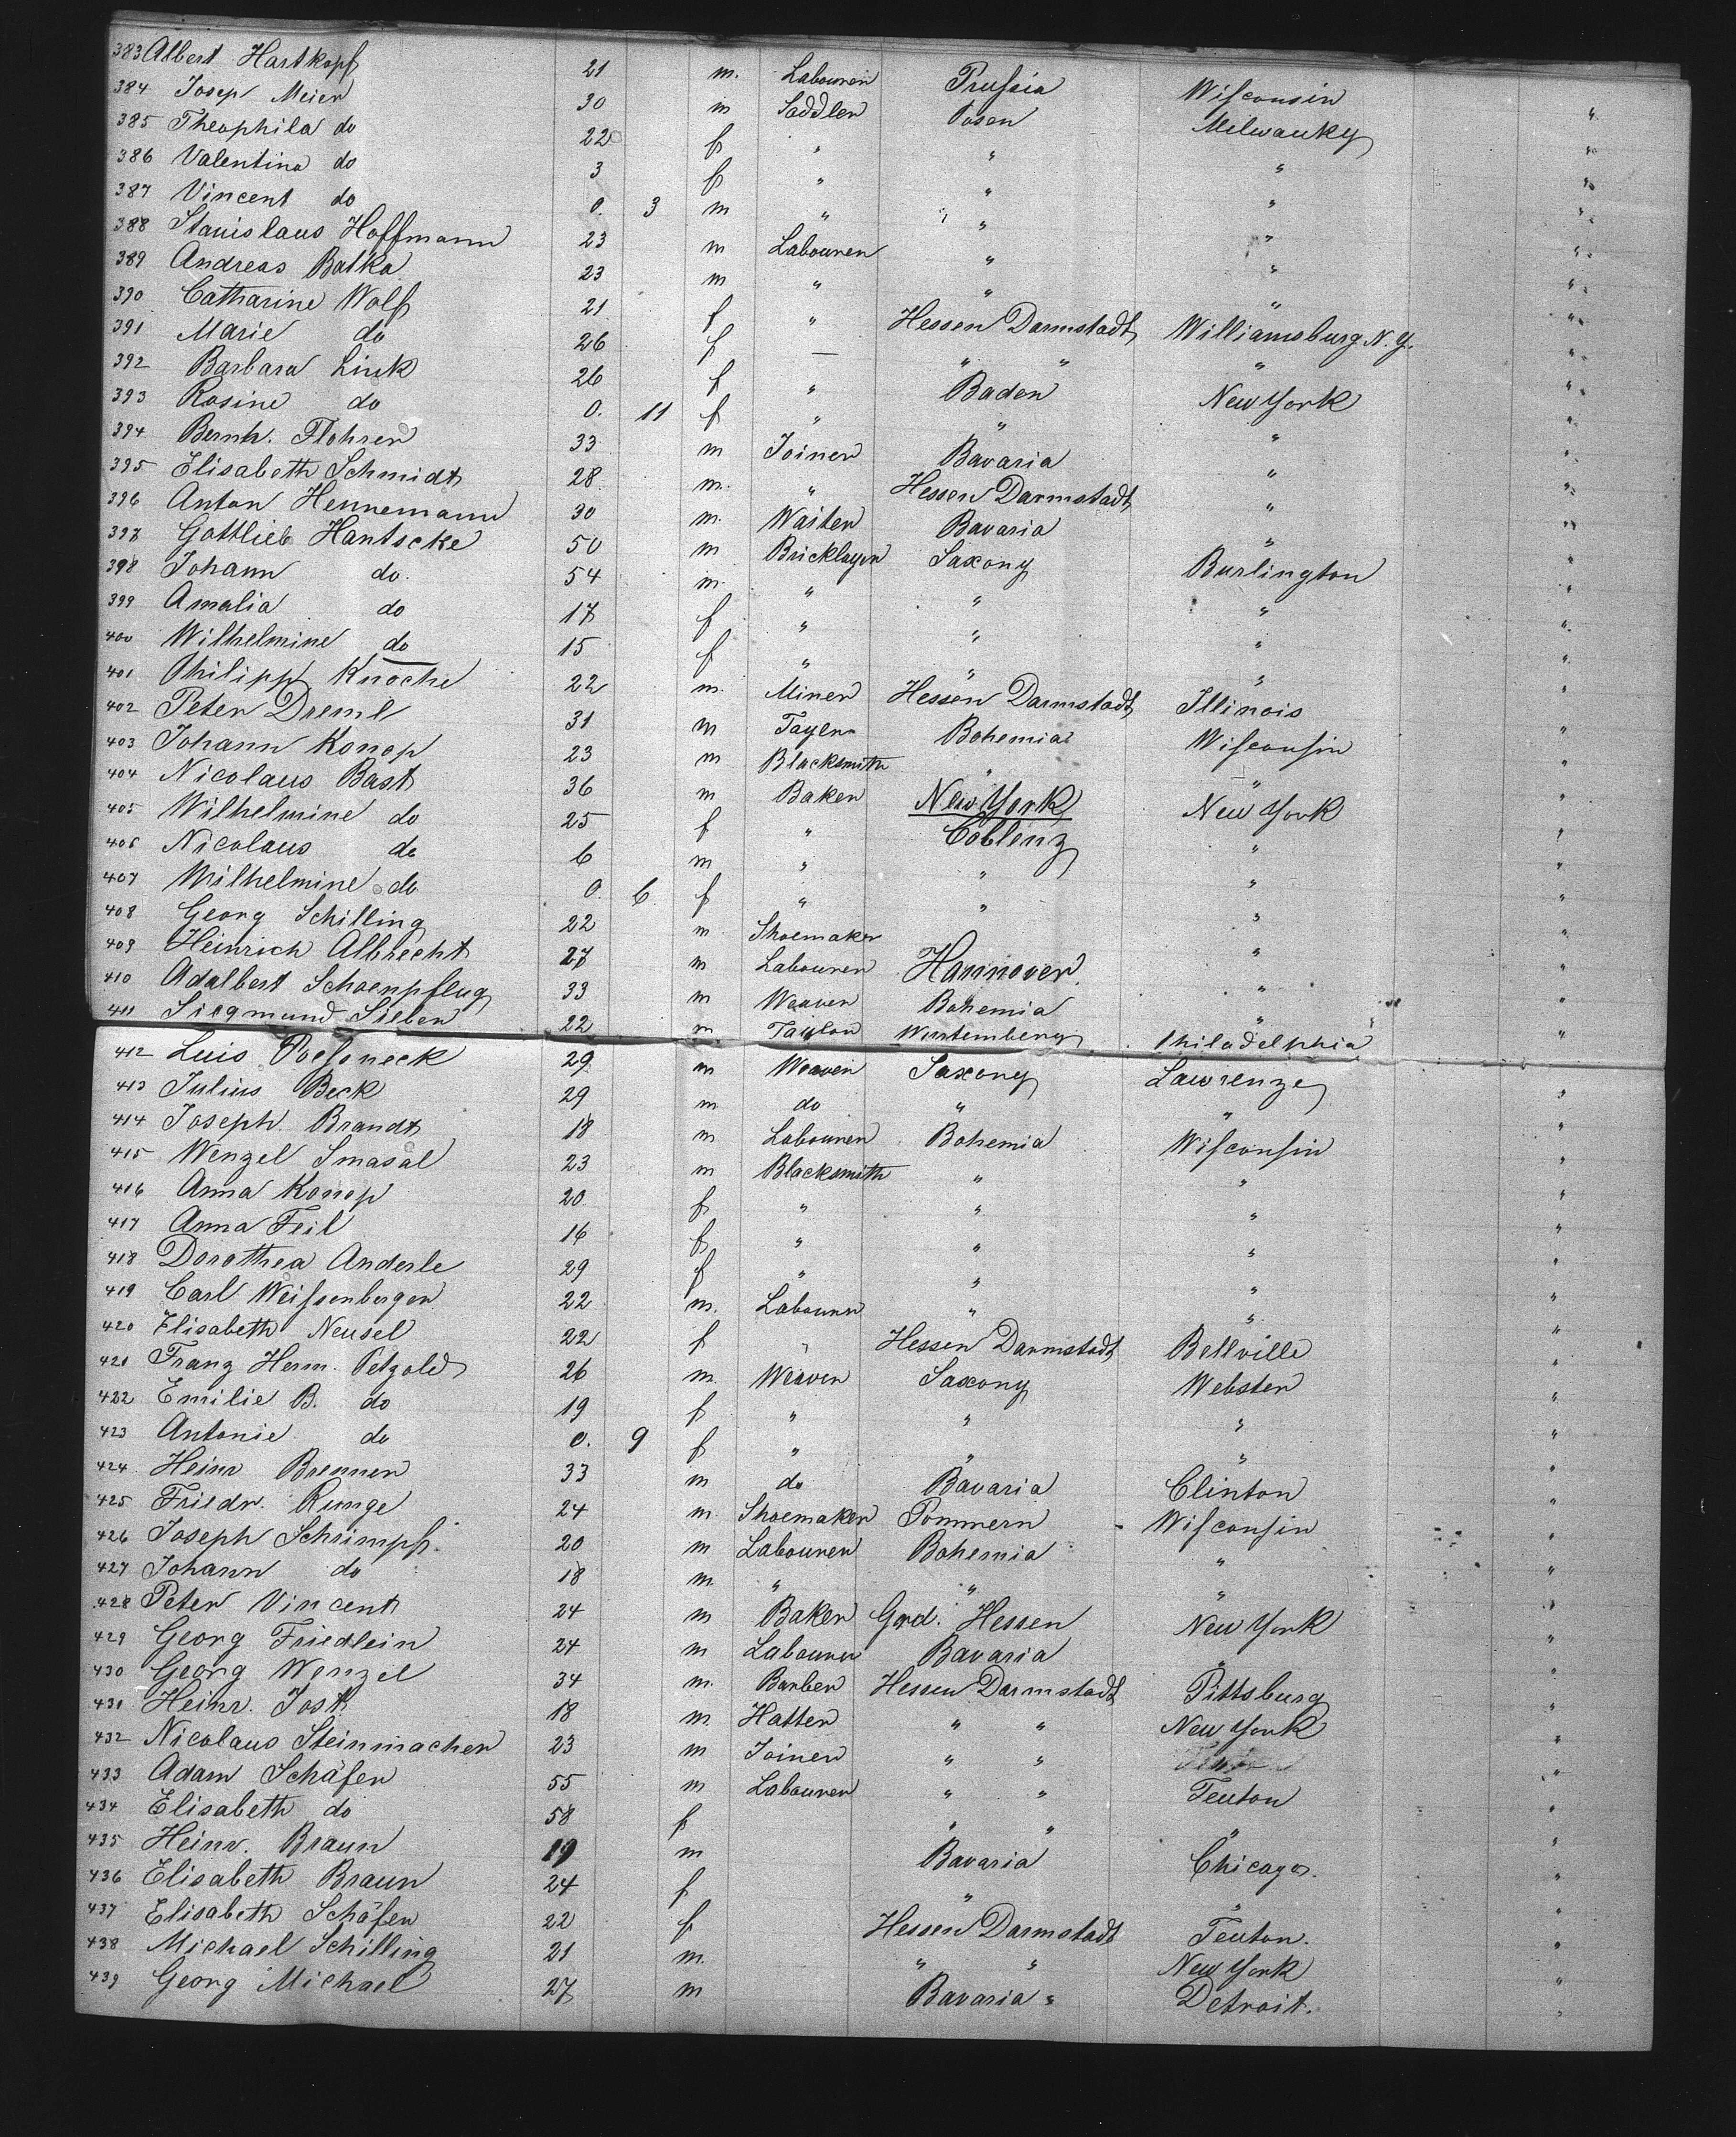 383 Albert Hartkopf 21 m. Labourer Prussia Wisconsin "
384 Josep Meier 30 m Saddler Posen Milwauky "
385 Theophila do 22 f " " " "
386 Valentina do 3 f " " " "
387 Vincent do 0. 3 m " " " "
388 Stanislaus Hoffmann 23 m Labourer " " "
389 Andreas Batka 23 m " " " "
390 Catharine Wolf 21 f " Hessen Darmstadt Williamsburg N.Y. "
391 Marie do 26 f — " " " "
392 Barbara Link 26 f " Baden New York "
393 Rosine do 0. 11 f " " " "
394 Bernh. Flohrer 33 m Joiner Bavaria " "
395 Elisabeth Schmidt 28 m. " Hessen Darmstadt " "
396 Anton Hennemann 30 m. Waiter Bavaria " "
397 Gottlieb Hantscke 50 m Bricklayer Saxony Burlington "
398 Johann do. 54 m. " " " "
399 Amalia do 17 f " " " "
400 Wilhelmine do 15 f " " " "
401 Philipp Knoche 22 m. Miner Hessen Darmstadt Illinois "
402 Peter Dreml 31 m Tayler Bohemia Wisconsin "
403 Johann Konop 23 m Blacksmith " " "
404 Nicolaus Bast 36 m Baker New York New York "
405 Wilhelmine do 25 f " Coblenz " "
406 Nicolaus do 6 m " " " "
407 Wilhelmine do 0. 6 f " " " "
408 Georg Schilling 22 m Shoemaker " "
409 Heinrich Albrecht 27 m Labourer Hannover. " "
410 Adalbert Schoenpflug 33 m Weaver Bohemia " "
411 Siegmund Sieben 22 m Taylor Wurtemberg Philadelphia "
412 Luis Poessneck 29 m Weaver Saxony Lawrenze "
413 Julius Beck 29 m do " " "
414 Joseph Brandt 18 m Labourer Bohemia Wisconsin "
415 Wenzel Smasal 23 m Blacksmith " " "
416 Anna Konop 20 f " " " "
417 Anna Feil 16 f " " " "
418 Dorothea Anderle 29 f " " " "
419 Carl Weissenberger 22 m. Labourer " " "
420 Elisabeth Neusel 22 f " Hessen Darmstadt Bellville "
421 Franz Herm. Petzold 26 m. Weaver Saxony Webster "
422 Emilie B. do 19 f " " " "
423 Antonie do 0. 9 f " " " "
424 Heinr Brenner 33 m do Bavaria Clinton "
425 Friedr. Runge 24 m. Shoemaker Pommern Wisconsin "
426 Joseph Schrimpf. 20 m Labourer Bohemia " "
427 Johann do 18 m. " " " "
428 Peter Vincent 24 m Baker Grd. Hessen New York "
429 Georg Friedlein 24 m Labourer Bavaria " "
430 Georg Wenzel 34 m. Barber Hessen Darmstadt Pittsburg "
431 Heinr. Jost. 18 m. Hatter " " New York "
432 Nicolaus Steinmacher 23 m Joiner " " "
433 Adam Schäfer 55 m Labourer " " Teuton "
434 Elisabeth do 58 f " " " "
435 Heinr. Braun 19 m Bavaria Chicago. "
436 Elisabeth Braun 24 f " " "
437 Elisabeth Schäfer 22 f Hessen Darmstadt Teuton. "
438 Michael Schilling 21 m. " " New York "
439 Georg Michael 27 m Bavaria " Detroit. "